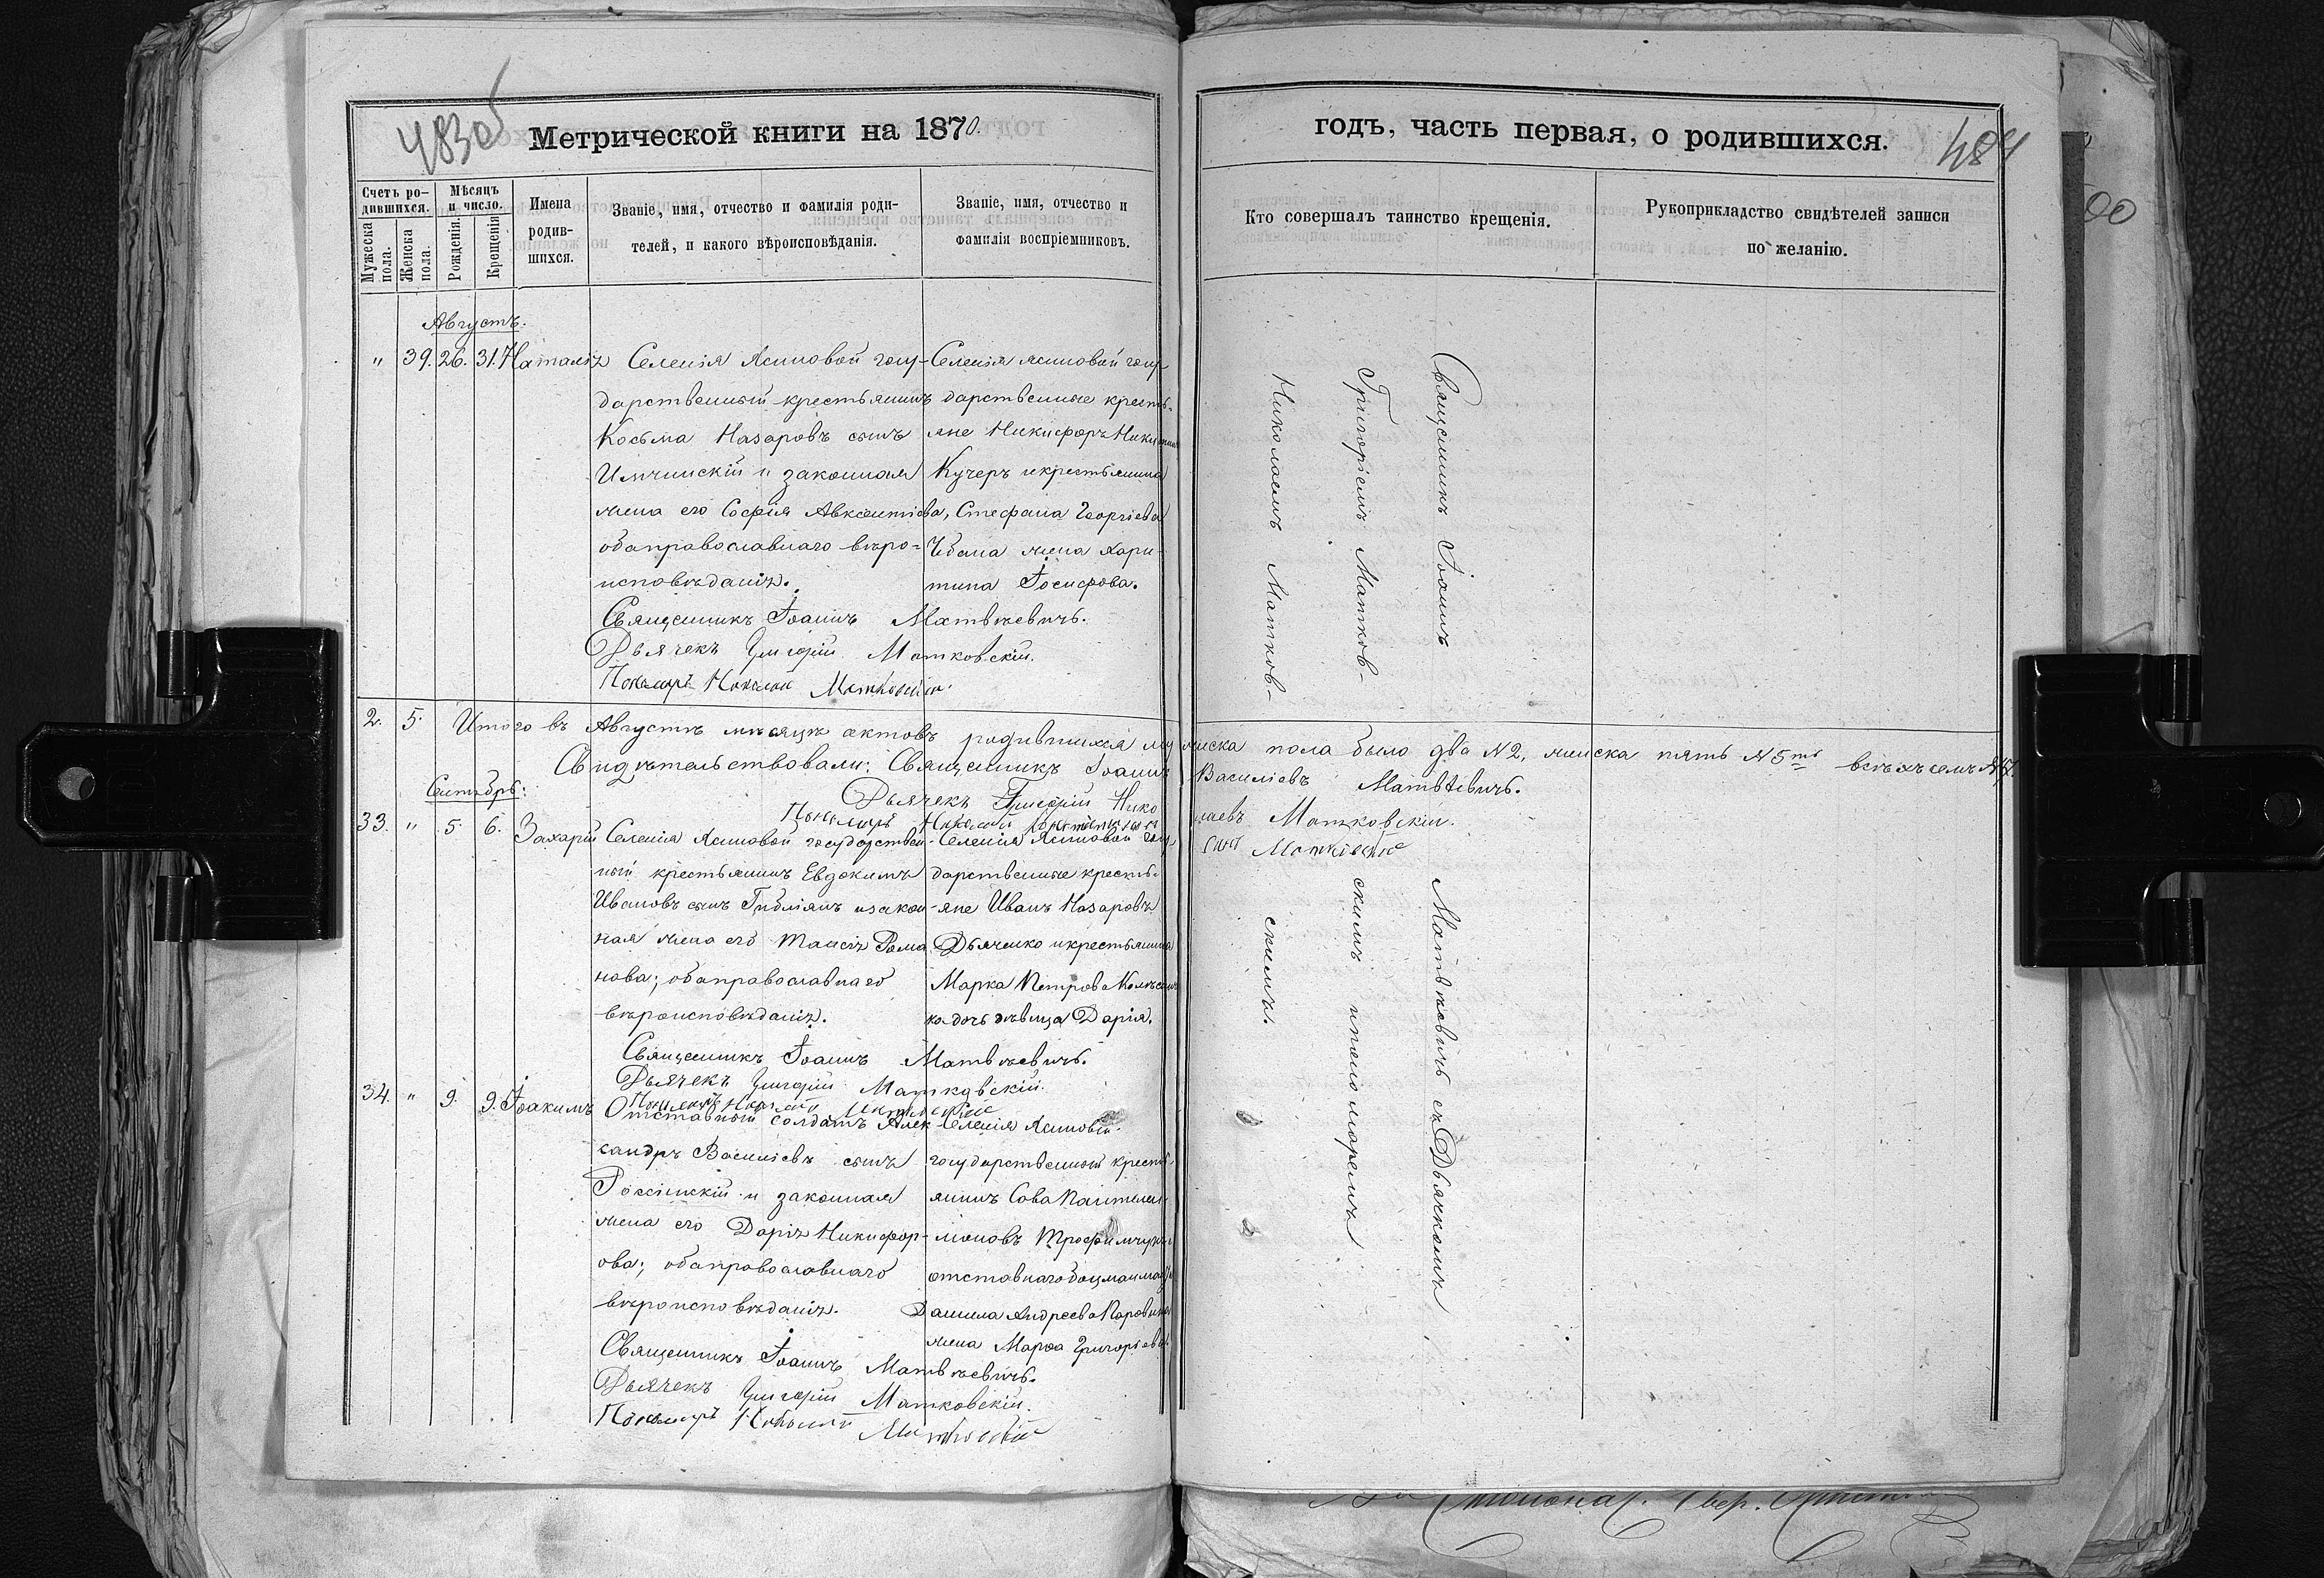 483об
Метрической книги на 1870.
годъ, часть первая, о родившихся.
484
Счетъ ро-
дившихся.
Мужеска пола.
Женска пола.
Мѣсяцъ
и число.
Рожденія.
Крещенія.
Имена
родив-
шихся.
Званіе, имя, отчество и фамилія роди-
телей, и какого вѣроисповѣданія.
Званіе, имя, отчество и
фамилія воспріемниковъ.
Кто совершалъ таинство крещенія.
Рукоприкладство свидѣтелей записи
по желанію.
Августъ.
" 39. 26. 31. Наталія
Селенія Ясиновой госу-
дарственный крестьянинъ
Косьма Назаровъ сынъ
и законная
жена его Софія Авксентіева,
оба православнаго вѣро=
исповѣданія.
Селенія Ясиновой госу
дарственные кресть-
яне Никифоръ
Кучеръ и крестьянина
Стефана Георгіева
Чебана жена Хари-
тина Іосифова.
Священникъ Іоаннъ Матвѣевичъ.
Дьячекъ Григорій Матковскій.
Пономарь Николай Матковскій.
Священникъ Іоаннъ Матвѣевичъ съ Дьячкомъ
Григоріемъ Матков-скимъ и пономаремъ
Николаемъ Матков-скимъ.
2. 5. Итого въ Августѣ мѣсяцѣ актовъ родившихся мужеска пола было два N 2, женска пять N 5ть всѣхъ семь N 7.
Свидѣтельствовали: Священникъ Іоаннъ Василіевъ Матвѣевичъ.
Дьячекъ Григорій Николаевъ Матковскій.
Пономарь Николай Матковскій
Сентябрь:
33. " 5. 6. Захарій
Селенія Ясиновой государствен-
ный крестьянинъ Евдокимъ
Ивановъ сынъ и закон-
ная жена его Таисія Рома
нова; оба православнаго
вѣроисповѣданія.
Селенія Ясиновой госу
дарственные кресть-
яне Иванъ Назаровъ
Дьяченко и крестьянина
Марка Петрова
ка дочь дѣвица Дарія.
Священникъ Іоаннъ Матвѣевичъ.
Дьячекъ Григорій Матковскій.
Пономарь Николай Матковскій
34. " 9. 9. Іоакимъ
Отставный солдатъ Алек-
сандръ Василіевъ сынъ
и законная
жена его Дарія Никифор-
ова; оба православнаго
вѣроисповѣданія.
Селенія Ясиновой
государственный кресть-
янинъ Сава Пантелей
моновъ Трофимчукъ
отставнаго боцманмата
Даниила Андреева
жена Марѳа Григорьева.
Священникъ Іоаннъ Матвѣевичъ.
Дьячекъ Григорій Матковскій.
Пономарь Николай Матковскій